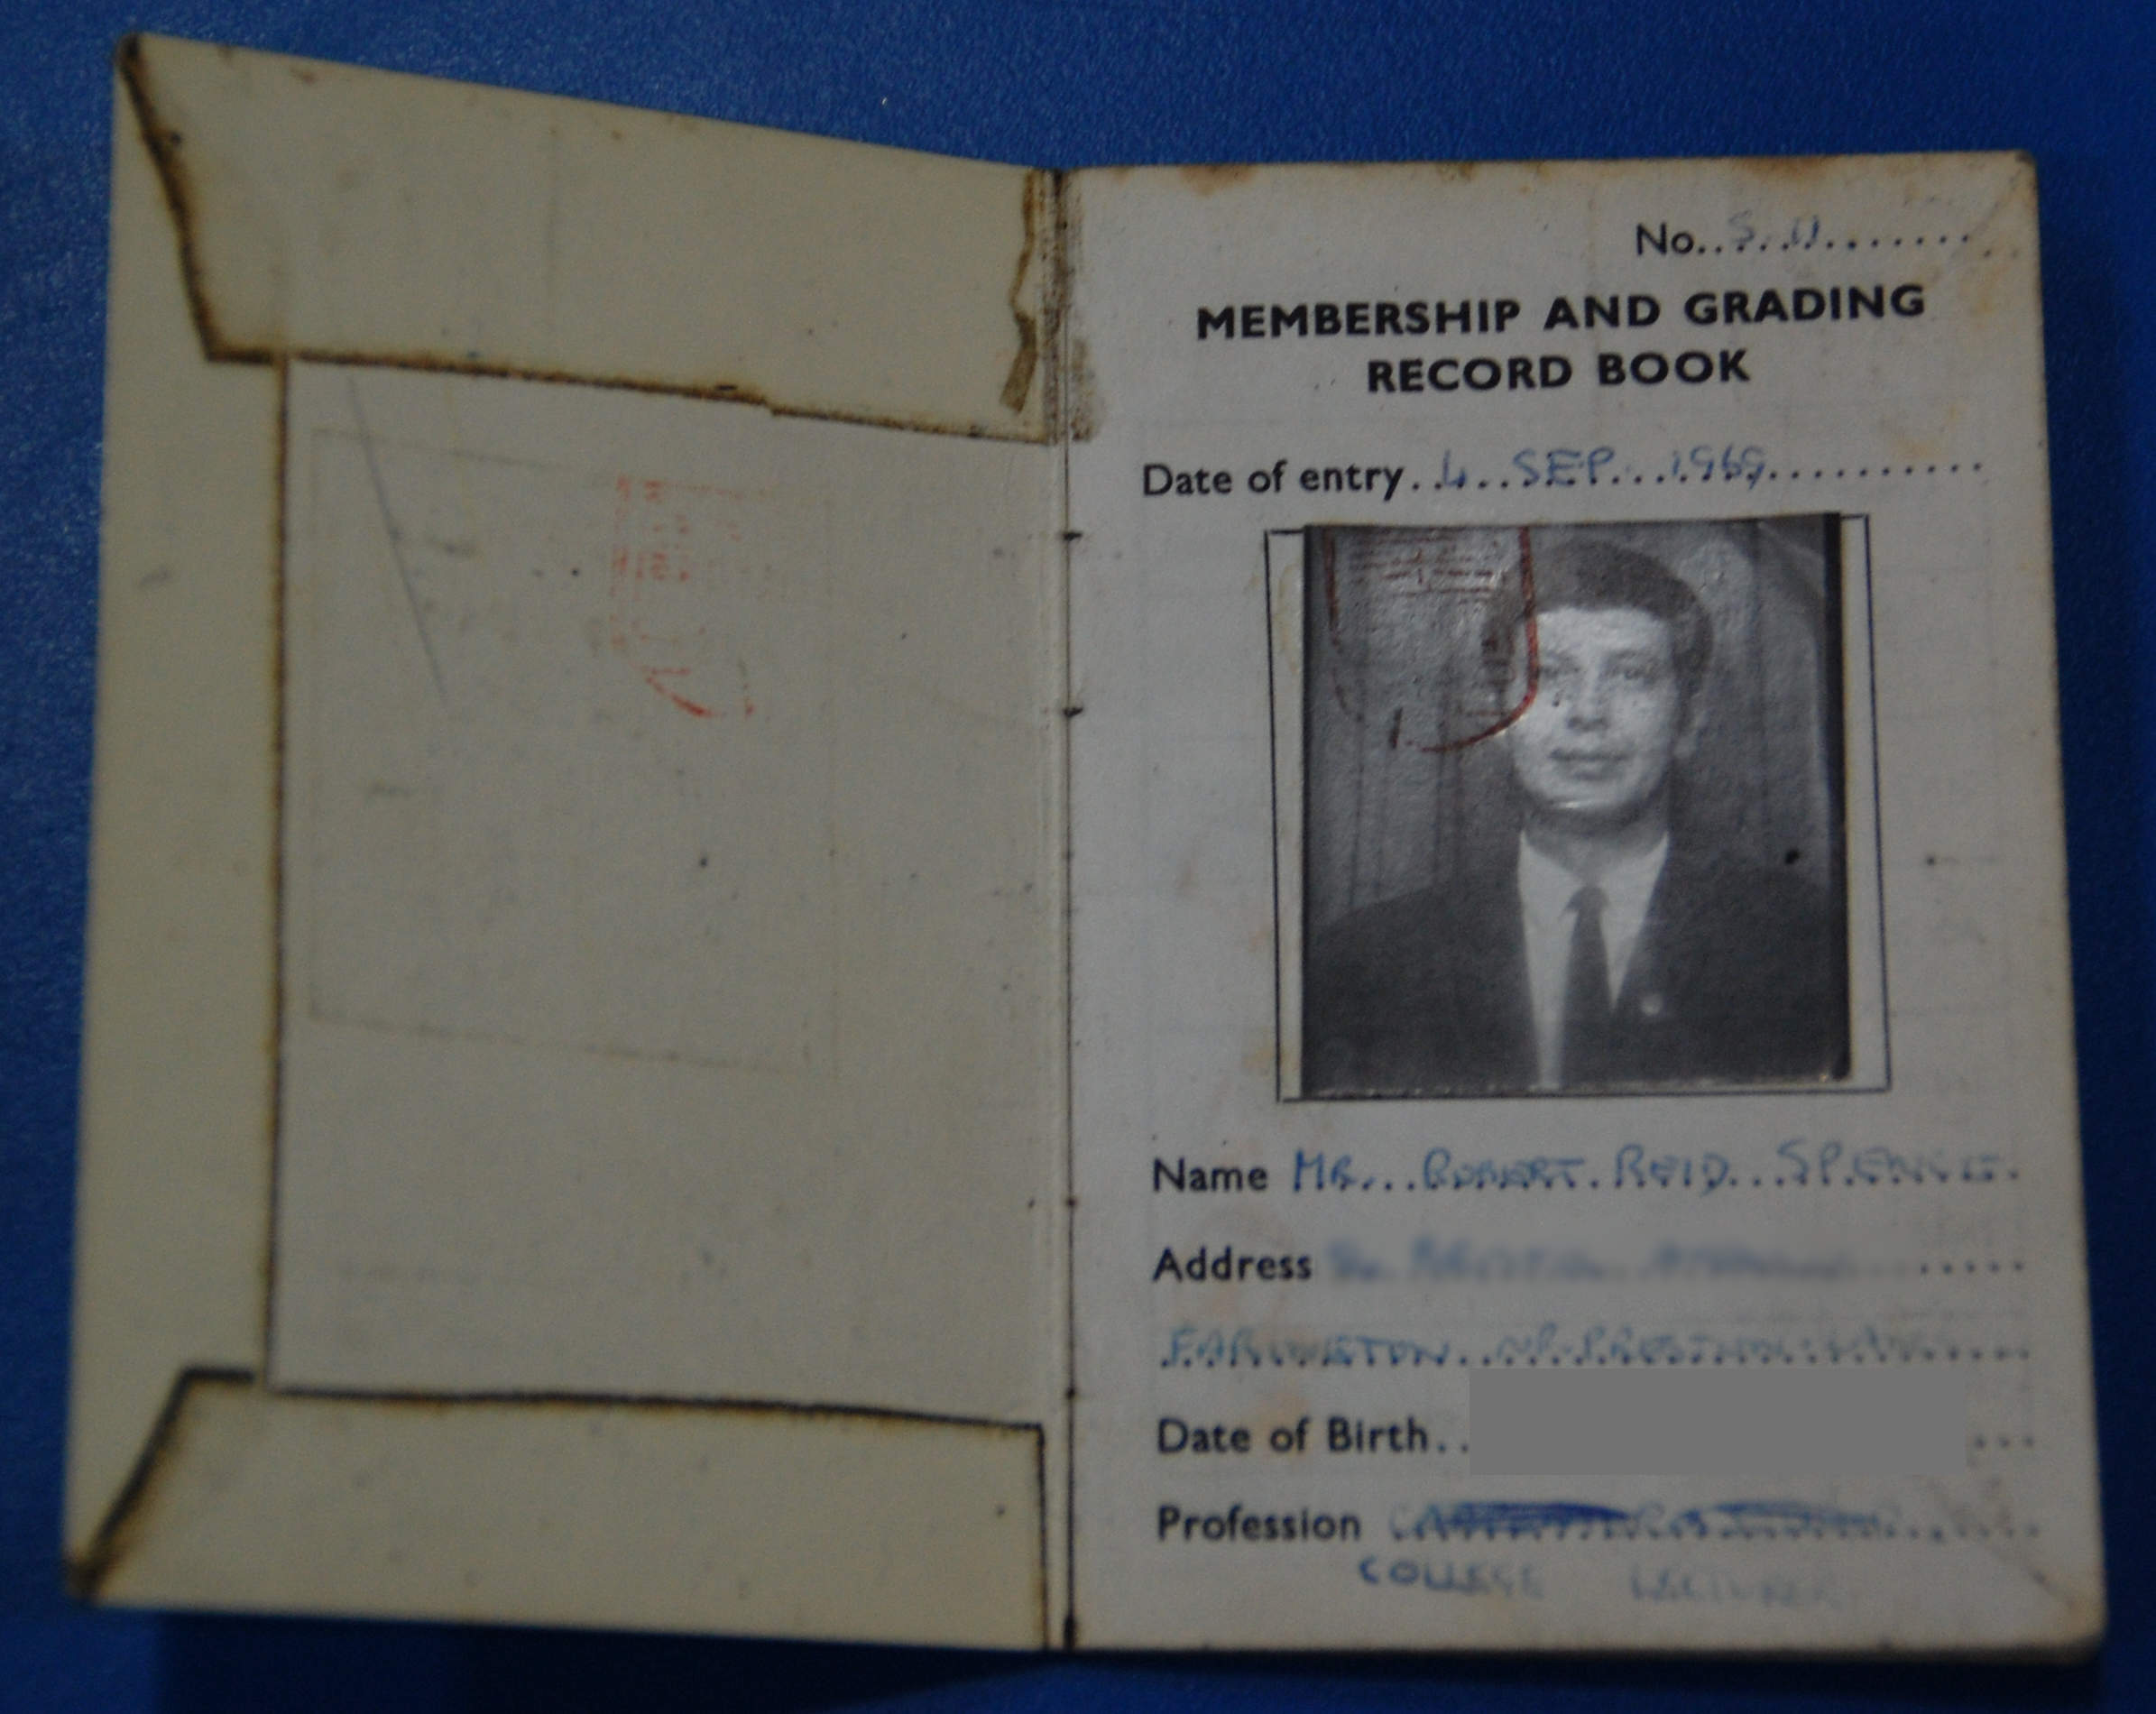 No..S.O........
MEMBERSHIP AND GRADING
RECORD BOOK
Date of entry..4..SEP...1969..........
Name MR...ROBERT.REID...SPENCE.
Address
FARINGTON..NR.PRESTON
Date of Birth..
Profession
COLLEGE LECTURER